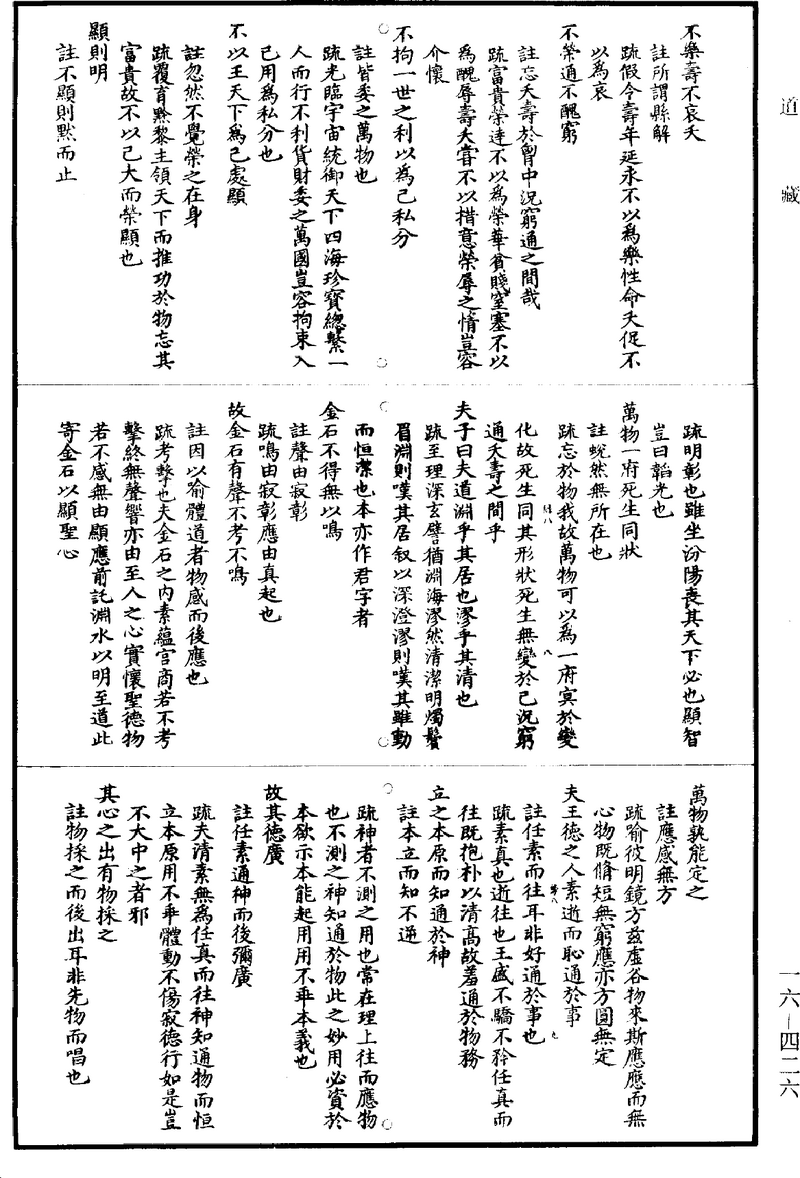 道藏
不樂壽不哀夭
註所謂縣解
疏假令壽年延永不以爲樂性命夭促不
以爲哀
不榮通不醜窮
註忘夭壽於胷中況窮通之間哉
疏富貴榮達不以爲榮華貧賤窒塞不以
爲醜辱壽夭嘗不以措意榮辱之情豈容
介懷
不拘一世之利以爲己私分
註皆委之萬物也
疏光臨宇宙統御天下四海珍寶總繫一
人而行不利貨財委之萬國豈容拘束入
己用爲私分也
不以王天下爲己處顯
註忽然不覺榮之在身
疏覆育黔黎主領天下而推功於物忘其
富貴故不以己大而榮顯也
顯則明
註不顯則默而止
疏明彰也雖坐汾陽喪其天下必也顯智
豈曰韜光也
萬物一府死生同狀
註蛻然無所在也
疏忘於物我故萬物可以爲一府冥於變
化故死生同其形狀死生無變於己況窮
通夭壽之間乎
夫子曰夫道淵乎其居也漻乎其清也
疏至理深玄譬猶淵海漻然清潔明燭鬢
眉淵則嘆其居叙以深澄漻則嘆其雖動
而恒潔也本亦作君字者
金石不得無以鳴
註聲由寂彰
疏鳴由寂彰應由真起也
故金石有聲不考不鳴
註因以喻體道者物感而後應也
疏考擊也夫金石之內素蘊宫商若不考
擊終無聲響亦由至人之心實懷聖德物
若不感無由顯應前託淵水以明至道此
寄金石以顯聖心
萬物孰能定之
註應感無方
疏喻彼明鏡方兹虛谷物來斯應應而無
心物既脩短無窮應亦方圓無定
夫王德之人素逝而恥通於事
註任素而往耳非好通於事也
疏素真也逝往也王盛不驕不矜任真而
往既抱朴以清高故羞通於物務
立之本原而知通於神
註本立而知不逆
疏神者不測之用也常在理上往而應物
也不測之神知通於物此之妙用必資於
本欲示本能起用用不乖本義也
故其德廣
註任素通神而後彌廣
疏夫清素無爲任真而往神知通物而恒
立本原用不乖體動不傷寂德行如是豈
不大中之者邪
其心之出有物採之
註物採之而後出耳非先物而唱也
一六—四二六